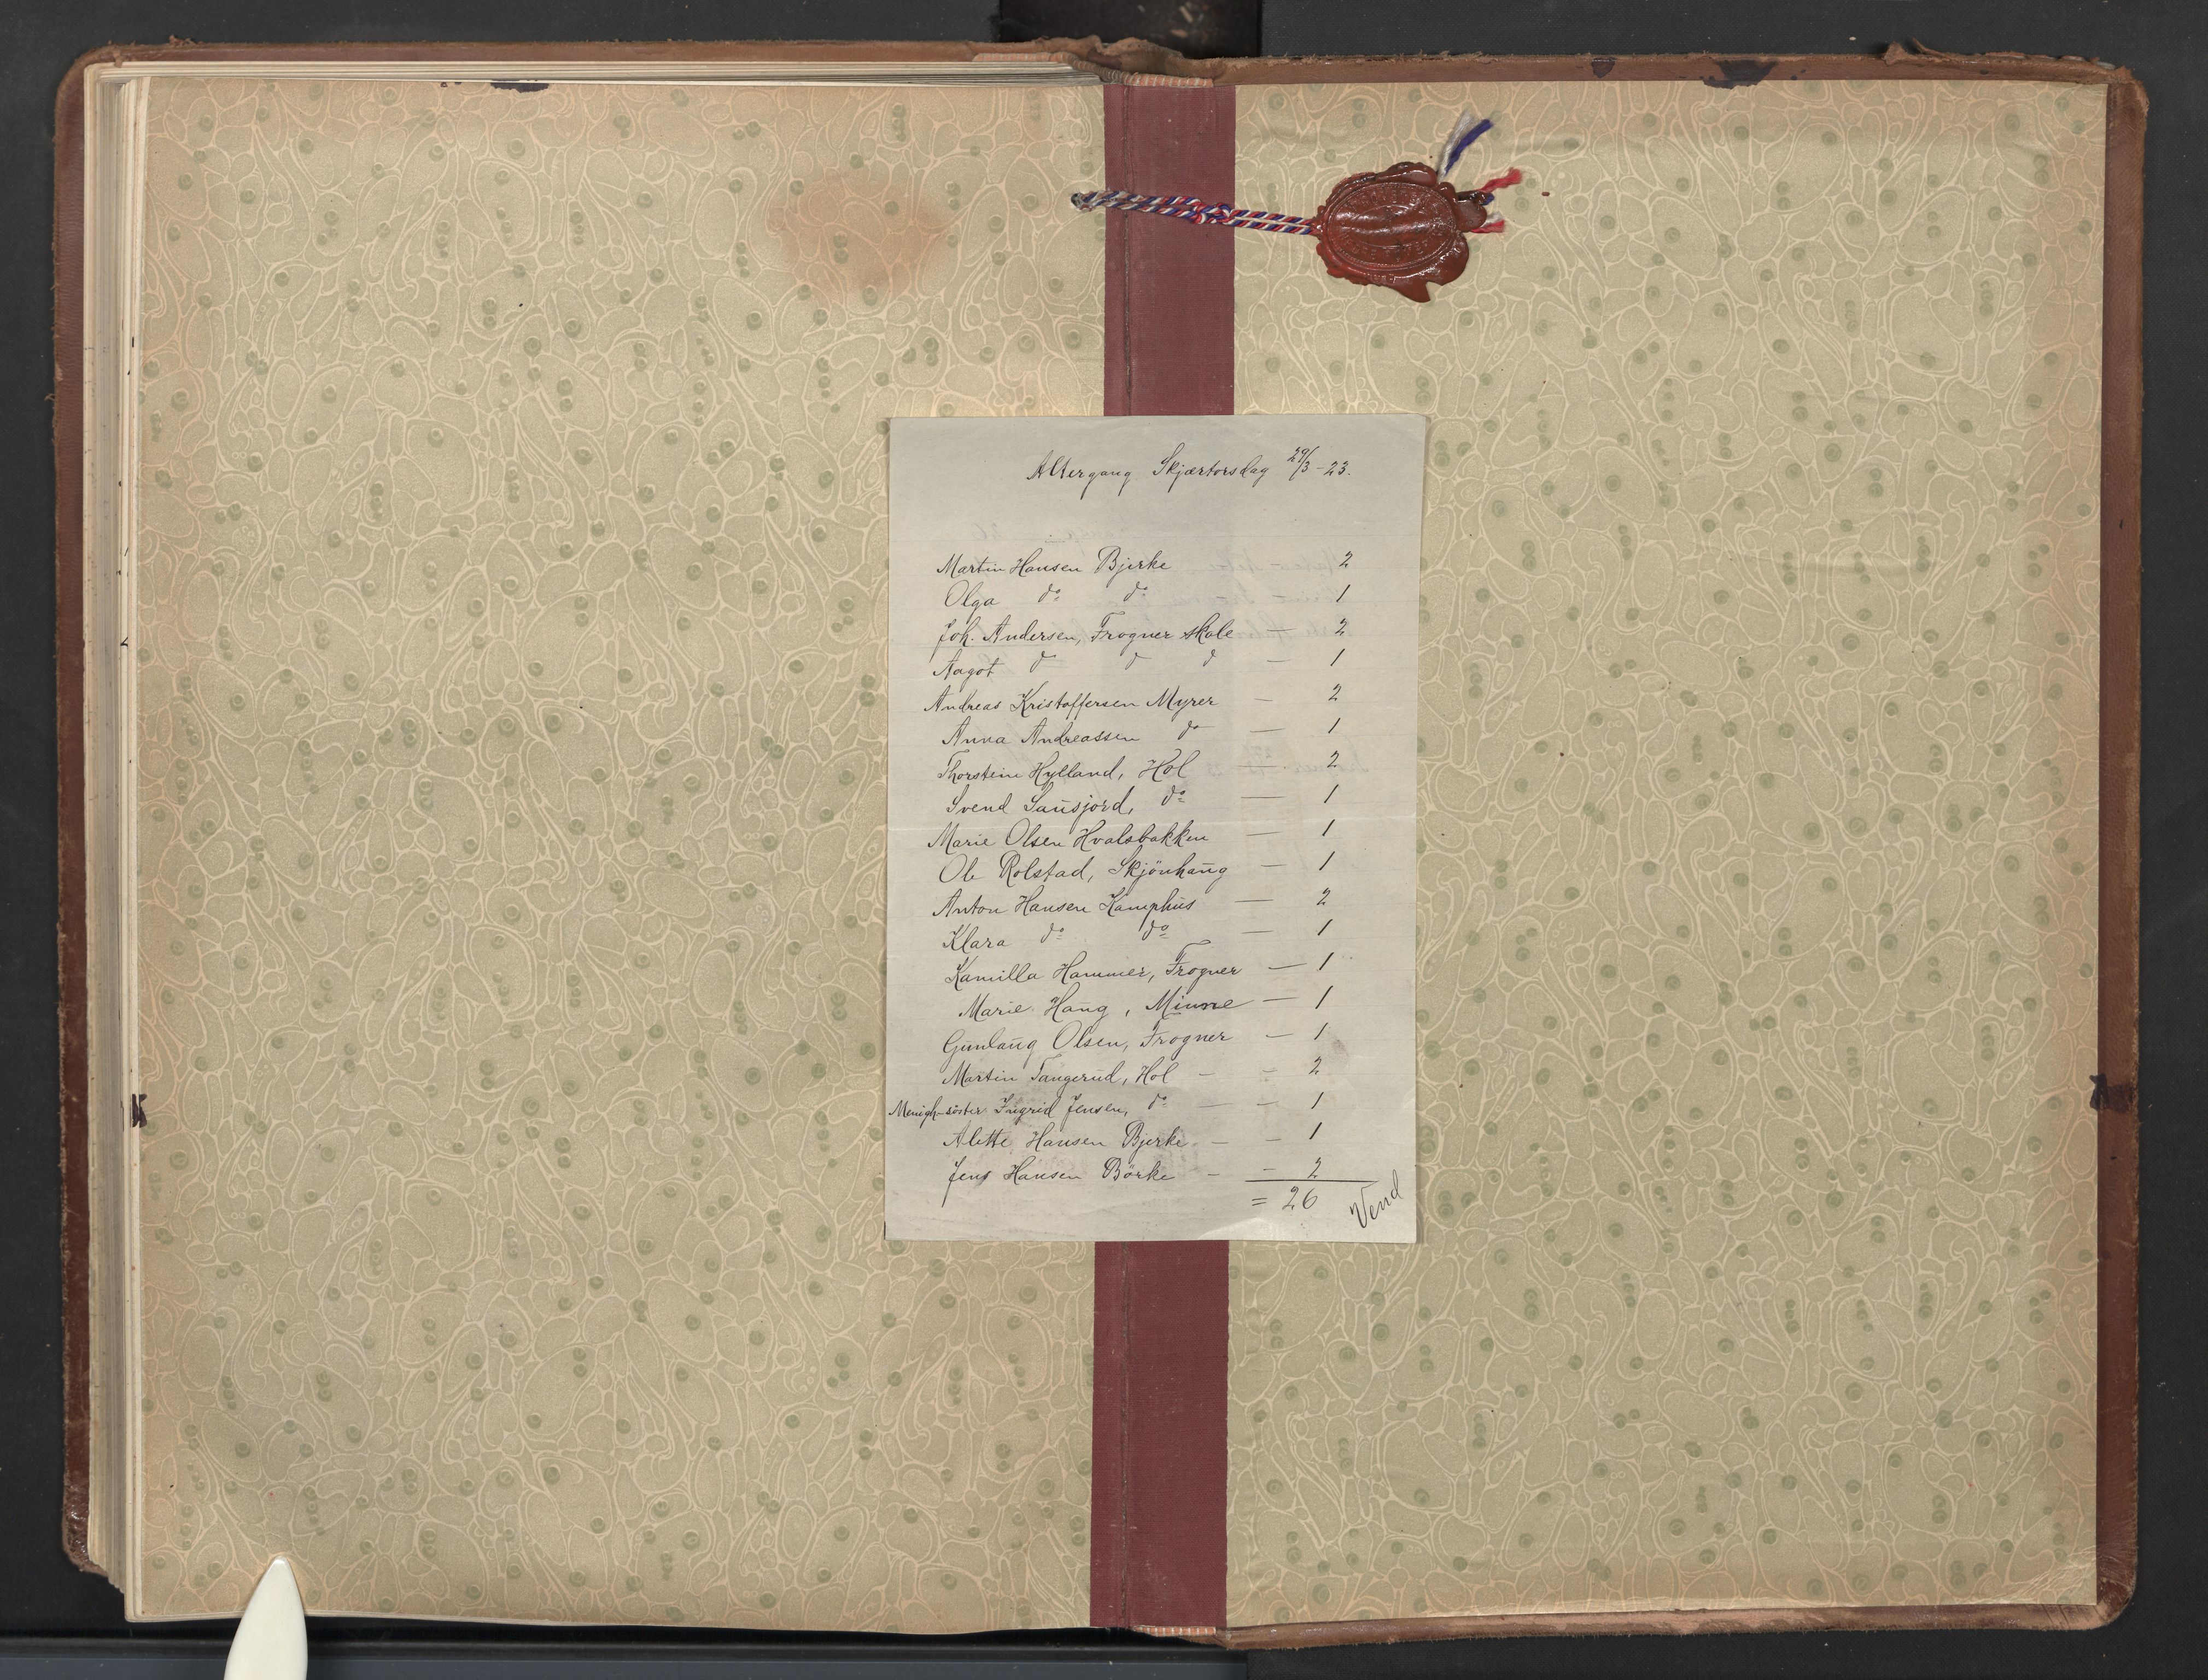 Altergang Skjærtorsdag 29/3-23.
Martin Hansen Bjerke 2
Olga do do — — 1
Joh. Andersen, Frogner skole — 2
Aagot d d d — 1
Andreas Kristoffersen Myrer — 2
Anna Andreassen do — 1
Thorstein Hylland, Hol — 2
Svend Sausjord, do — 1
Marie Olsen Hvalsbakken — 1
Ole Rolstad, Skjönhaug — 1
Anton Hansen Kamphus — 2
Klara do do — 1
Kamilla Hammer, Frogner — 1
Marie Haug, Minne — 1
Gunlaug Olsen, Frogner — 1
Martin Tangerud, Hol — — 2
Menigh-söster Ingrid Jensen, do — — 1
Alette Hansen Bjerke — — 1
Jens Hansen Börke — — 2
= 26 Vend